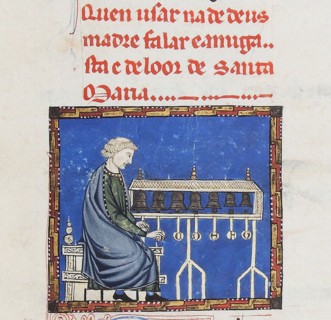 Quen usar na de deus
madre falar e amiga..
sta e de loor de Santa
Maria